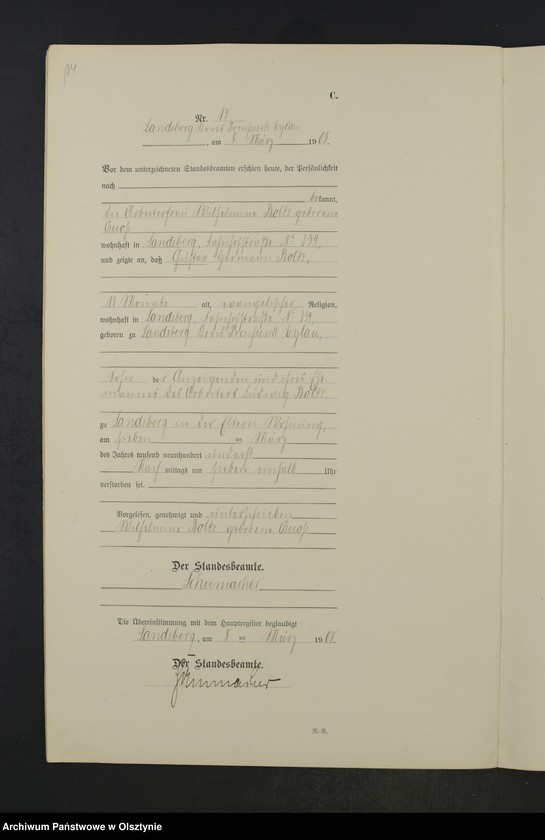 C.
Nr. 19
Landsberg Kreis Preußisch Eylau
, am 8. März 1908.
Vor dem unterzeichneten Standesbeamten erschien heute, der Persönlichkeit
nach
bekannt,
die Arbeiterfrau Wilhelmine geborene
wohnhaft in Landsberg, Bahnhofstraße No 139,
und zeigte an, daß Gustav Hermann
11 Monate alt, evangelischer Religion,
wohnhaft in Landsberg, Bahnhofstraße No 139,
geboren zu Landsberg Kreis Preußisch Eylau,
Sohn der Anzeigenden und ihres Ehe-
mannes des Arbeiters Ludwig
zu Landsberg in der Eltern Wohnung,
am sieben ten März
des Jahres tausend neunhundert undacht
Nach mittags um sieben einhalb Uhr
verstorben sei.
Vorgelesen, genehmigt und unterschrieben
Wilhelmine geborene
Der Standesbeamte.
Schumacher
Die Übereinstimmung mit dem Hauptregister beglaubigt
Landsberg, am 8 ten März 1908.
Der Standesbeamte.
Schumacher
R.-R.
Archiwum Państwowe w Olsztynie